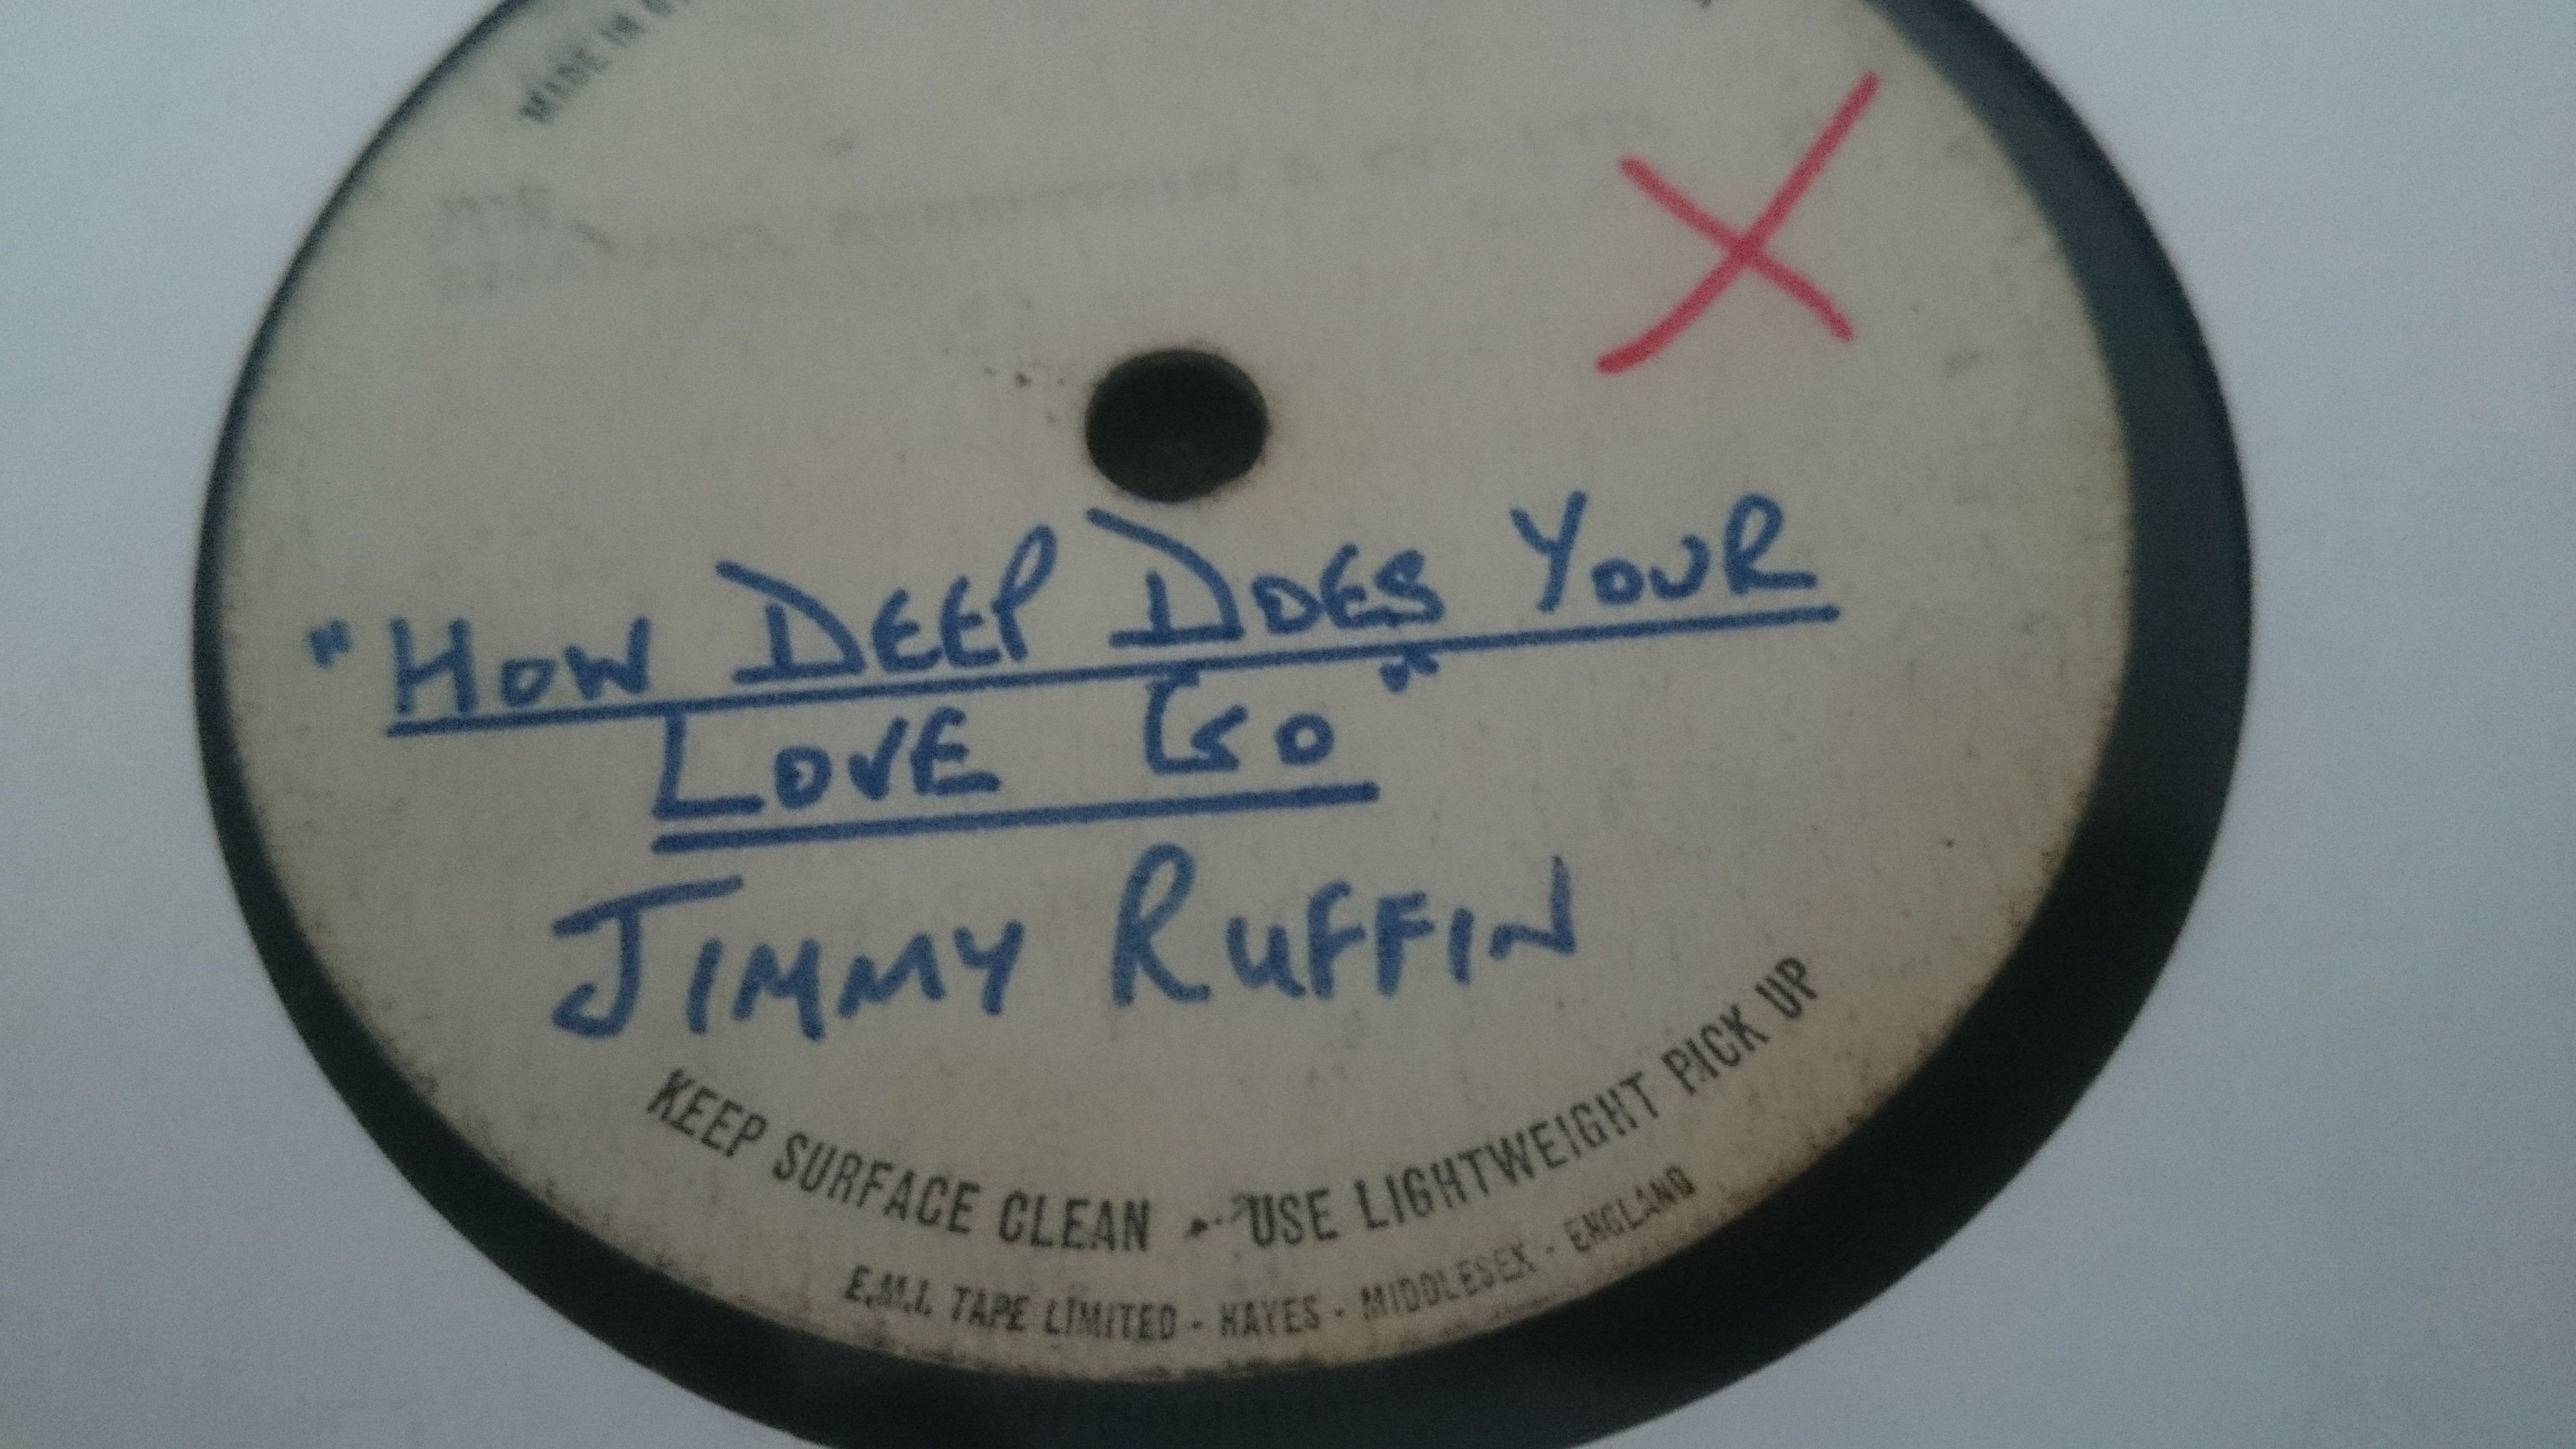 MADE IN
"HOW DEEP DOES YOUR
LOVE GO"
JIMMY RUFFIN
KEEP SURFACE CLEAN - USE LIGHTWEIGHT PICK UP
E.M.I. TAPE LIMITED - HAYES - MIDDLESEX - ENGLAND